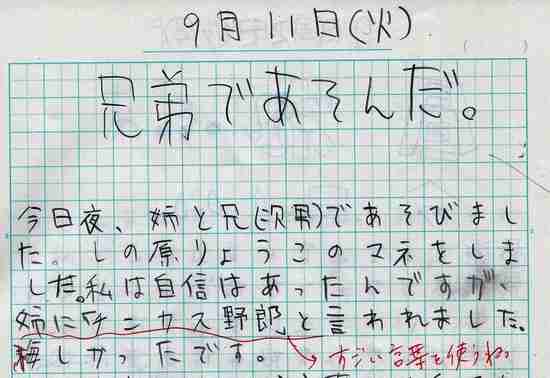 9月11日(火)
兄弟であそんだ。
今日夜、姉と兄(次男)であそびまし
た。しの原りょうこのマネをしま
した。私は自信はあったんですが、
姉にチンカス野郎と言われました。
悔しかったです。
すごい言葉を使うね。